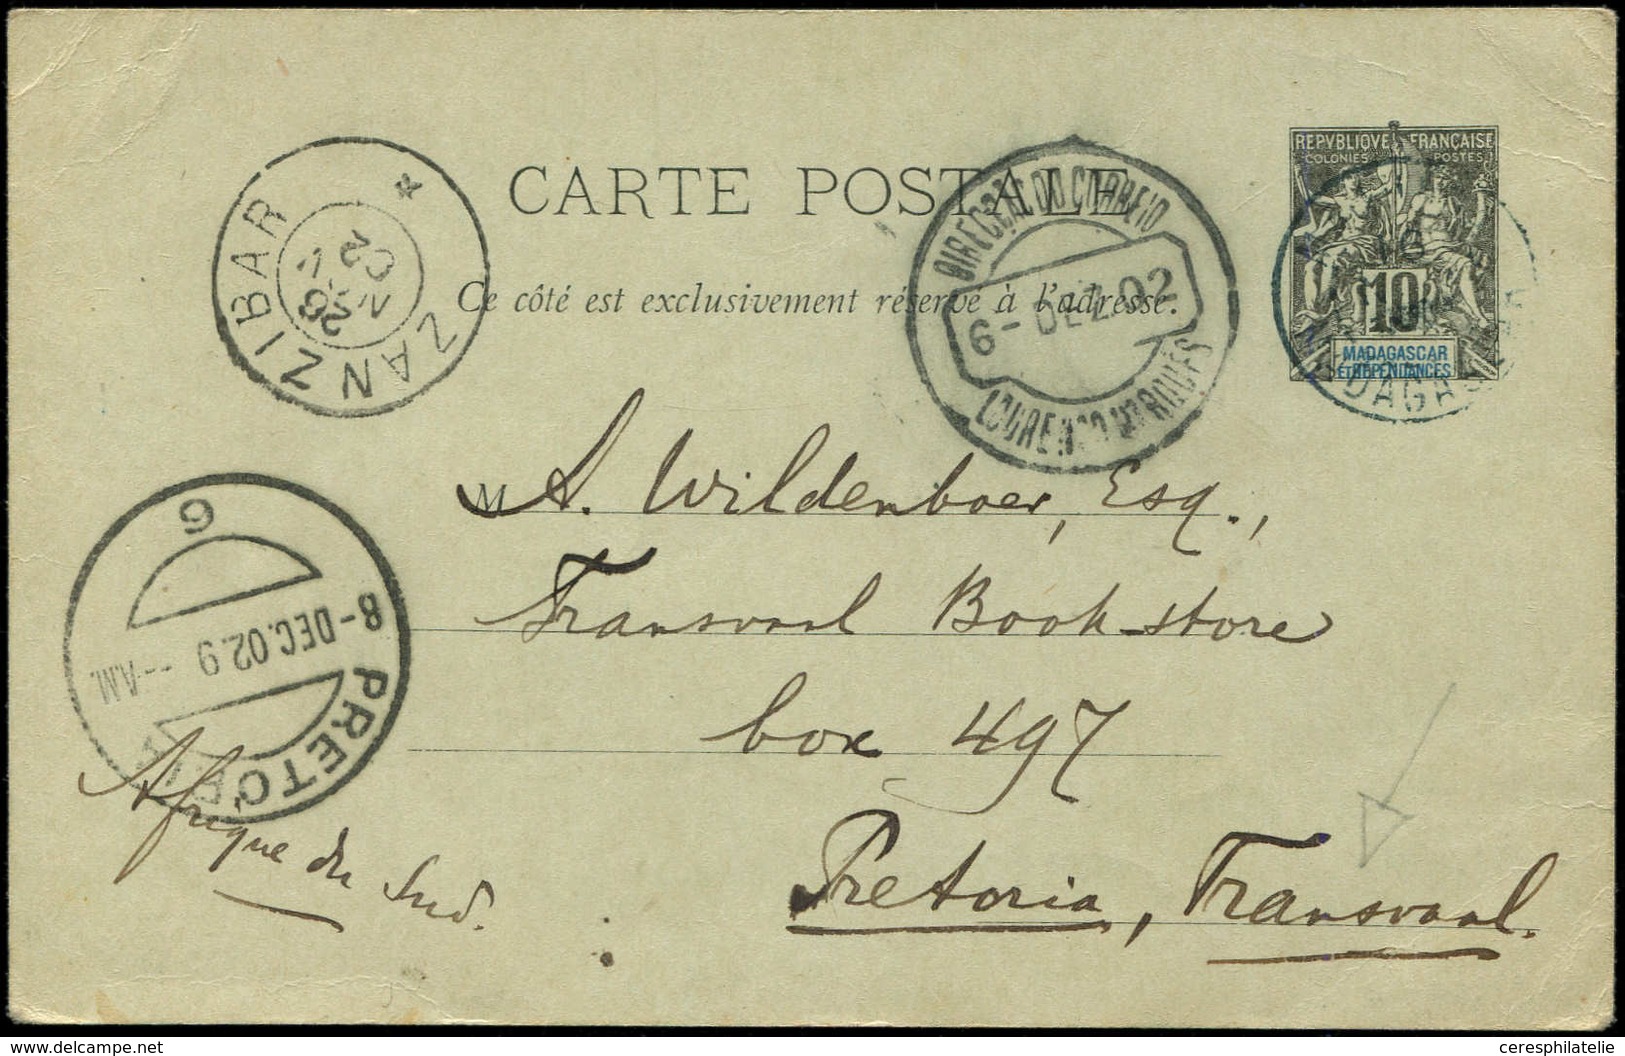 REPVBLIQVE FRANÇAISE
COLONIES POSTES
10
MADAGASCAR
ET DÉPENDANCES
MADAGASCAR
CARTE POSTALE
Ce côté est exclusivement réservé à l'adresse.
ZANZIBAR
*
28
02
DIRECÇÃO DO CORREIO
6-DEZ.02
LOURENÇO MARQUES
M A. Wildenboer, Esq.,
Transvaal Book-store
box 497
Pretoria, Transvaal.
PRETORIA
8-DEC.02.9 -A.M.
6
Afrique du Sud.
delcampe.net
ceresphilatelie